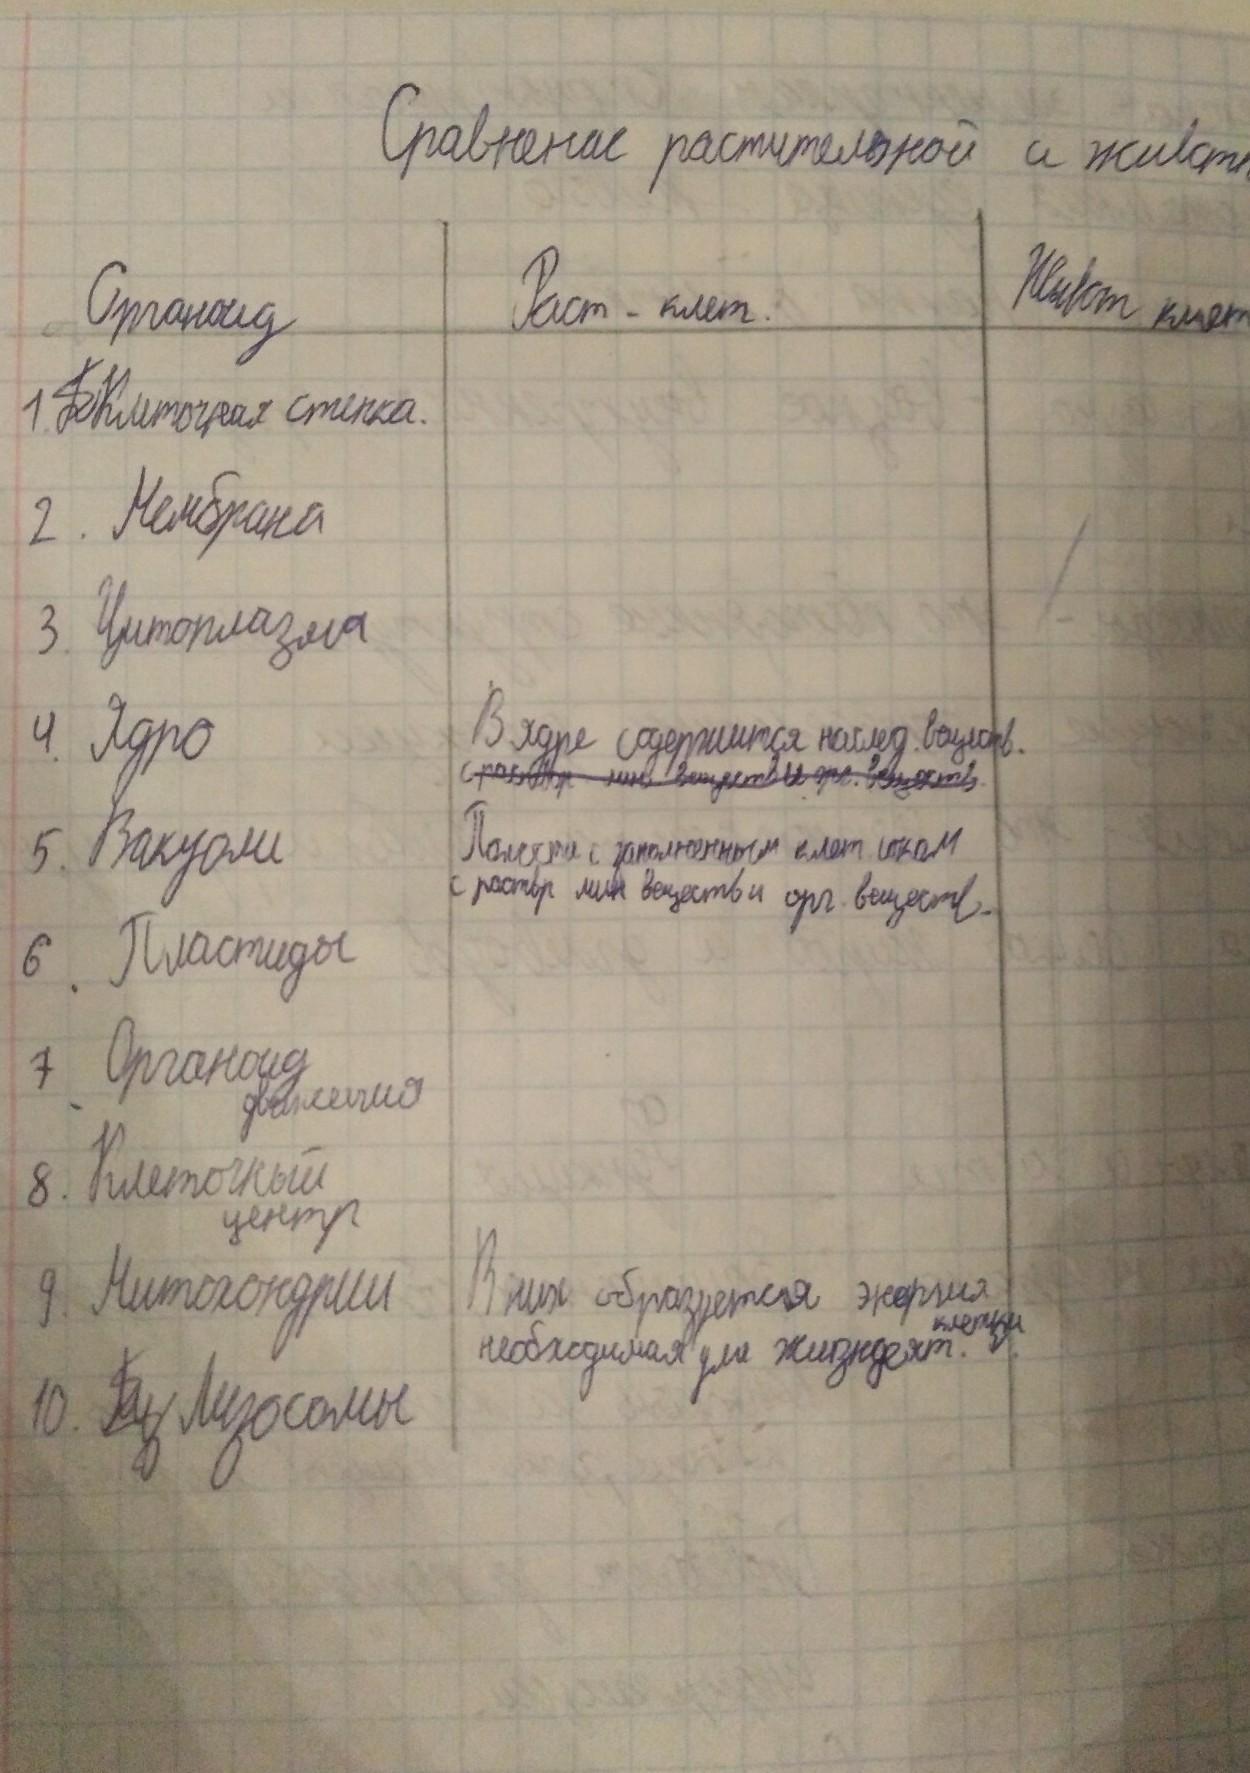 Сравнение растительной и животн
Органоид Раст - клет. Живот клет
1. Клеточная стенка.
2. Мембрана
3. Цитоплазма
4. Ядро В ядре содержится наслед. веществ.
5. Вакуоли Полости с заполненным клет. соком
с раствр мин веществ и орг. веществ.
6. Пластиды
7 Органоид
движения
8. Клеточный
центр
9. Митохондрии В них образуется энергия
необходимая для жизнедеят. клетки.
10. Лизосомы